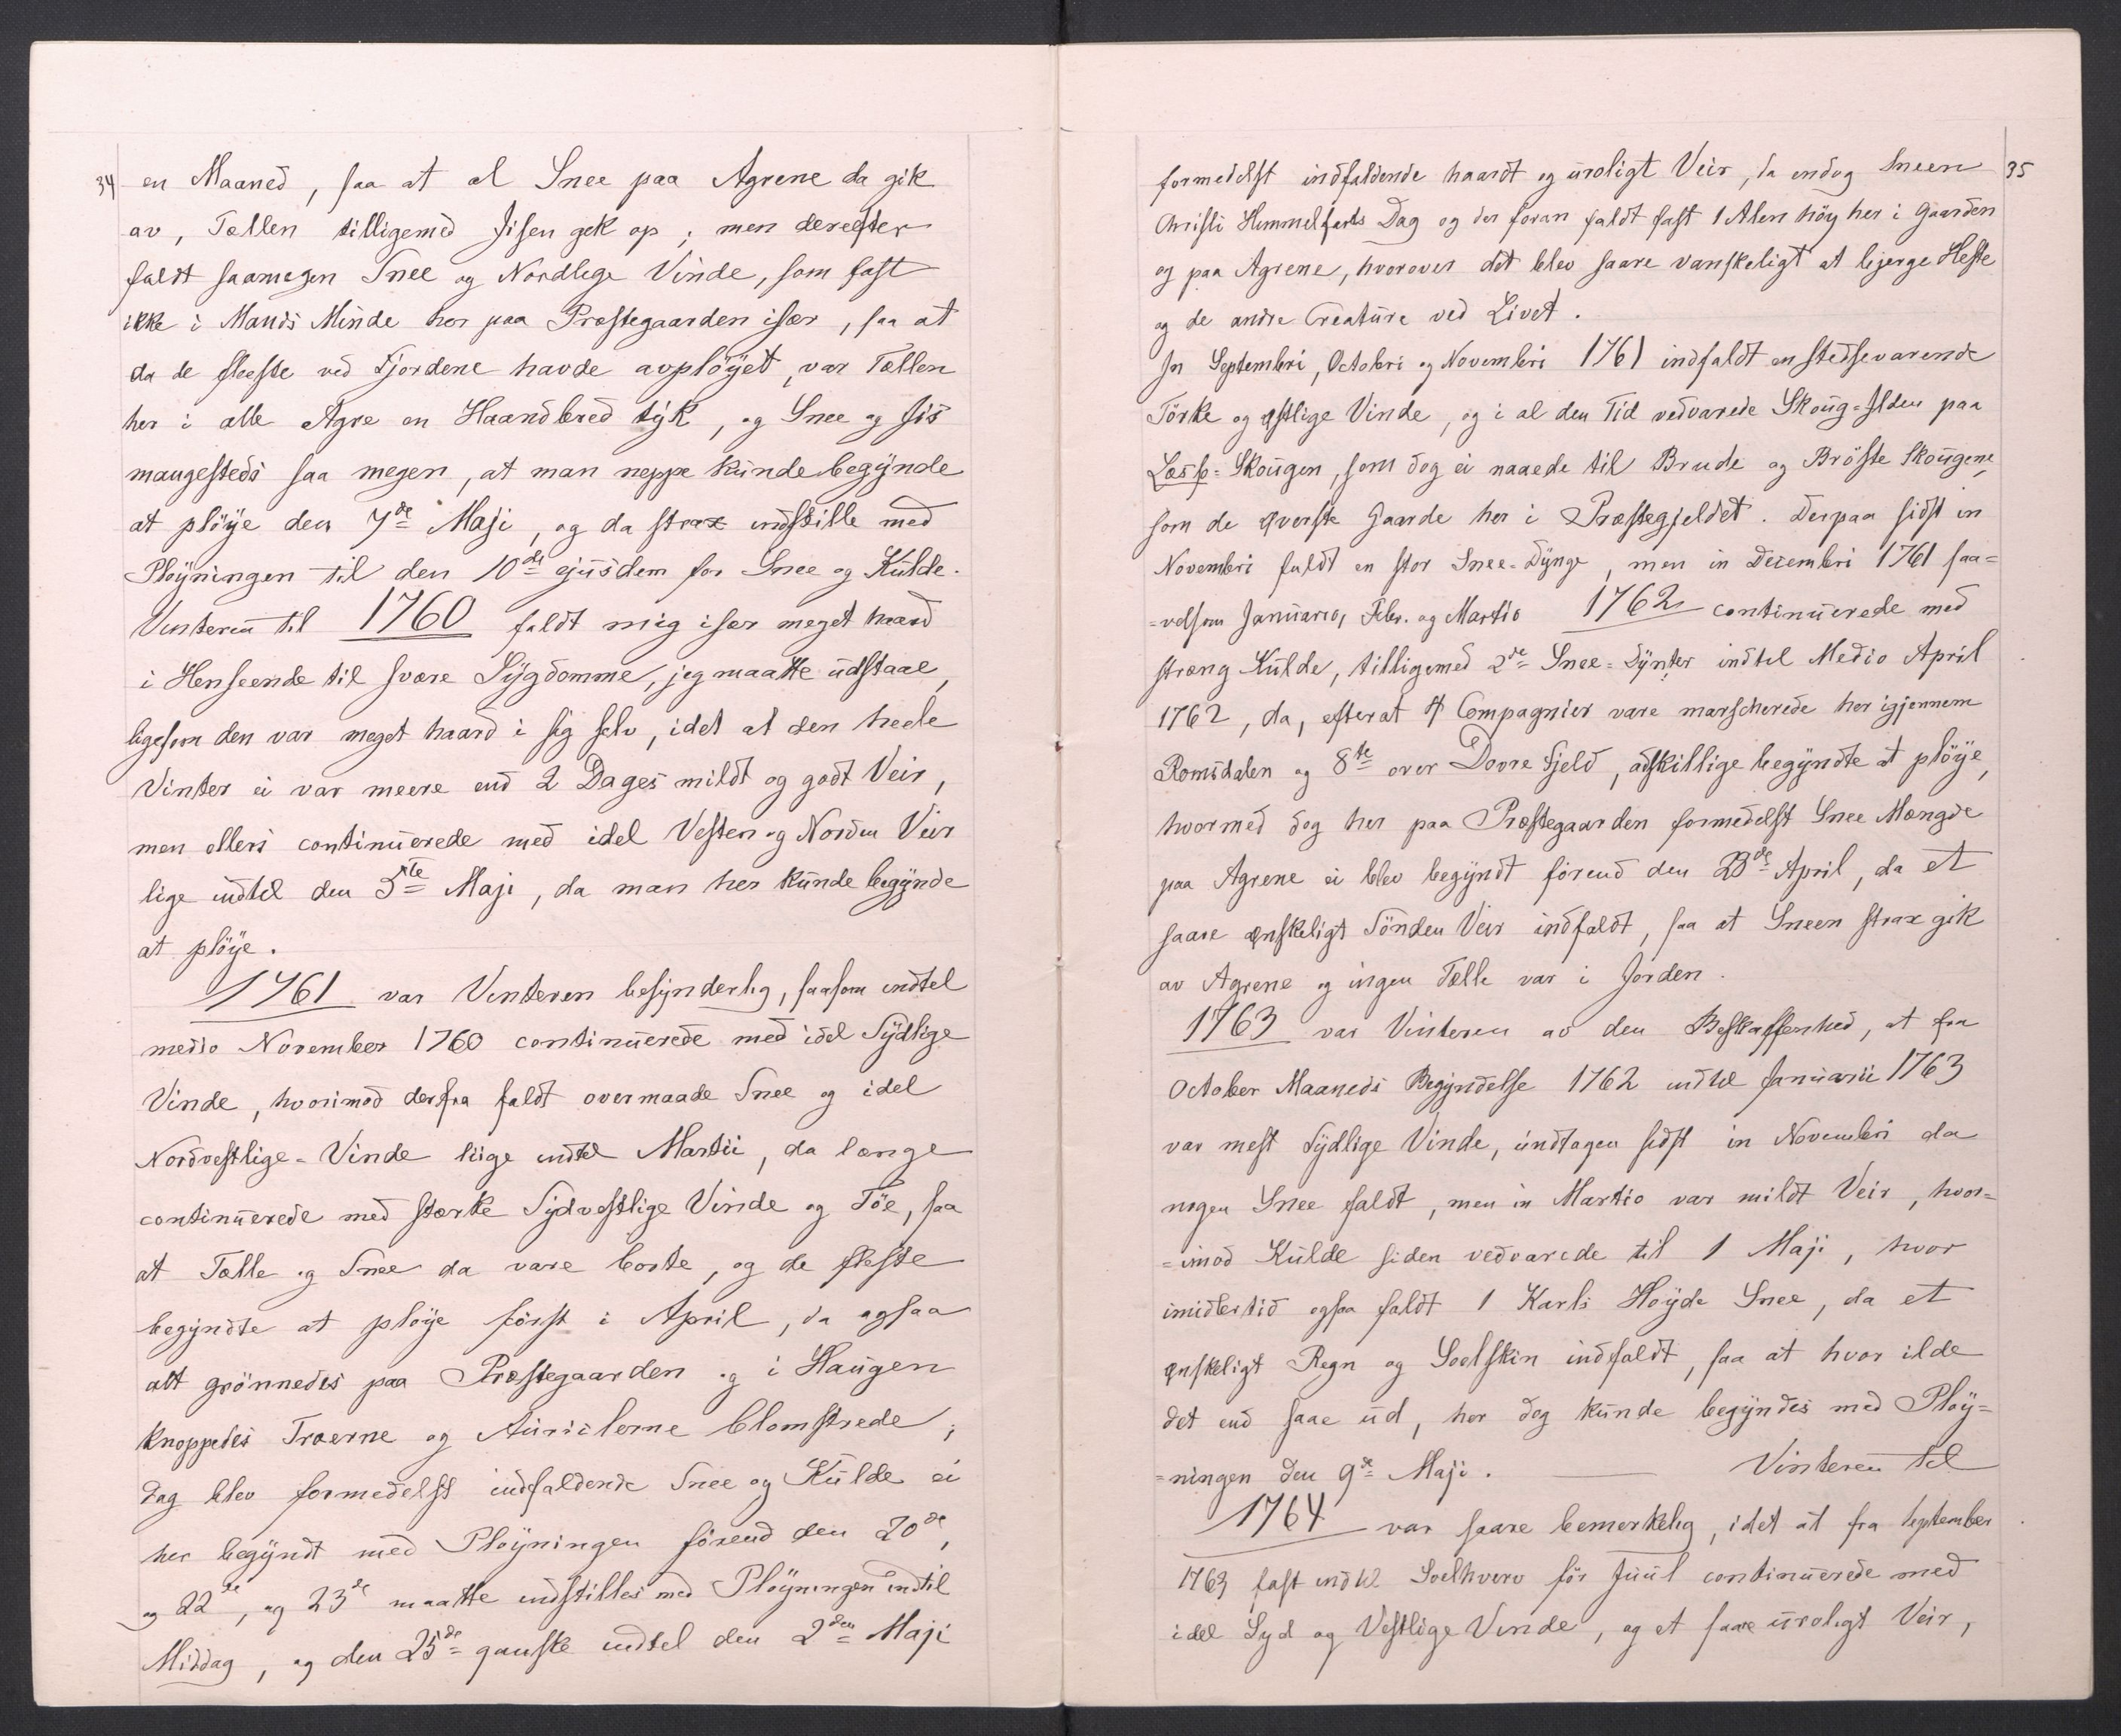 34
en Maaned, saa at al Snee paa Agrene da gik
av, Tællen tilligemed Jisen gek op; men derefter
faldt saamegen Snee og Nordlege Vinde, som fast
ikke i Mands Minde her paa Præstegaarden især, saa at
da de fleeste ved Fjordene havde avplöyet, var Tællen
her i alle Agre en Haandbred tyk, og Snee og Jis
mangesteds saa megen, at man neppe kunde begynde
at plöye den 7de Maji, og da strax indstille med
Pløyningen til den 10de ejusdem for Snee og Kulde.
Vinteren til 1760 faldt mig især meget haard
i Henseende til svære Sygdomme, jeg maatte udstaae,
ligesom den var meget haard i sig selv, idet at den heele
Vinter ei var meere end 2 Dages mildt og godt Veir,
men ellers continuerede med idel Vesten og Norden Veir
lige indtil den 5te Maji, da man her kunde begynde
at plöye.
1761 var Vinteren besynderlig, saasom indtel
medio November 1760 continuerede med idel Sydlige
Vinde, hvorimod derfra faldt overmaade Snee og idel
Nordvestlige-Vinde liige indtel Martii, da længe
continuerede med stærke Sydvestlige Vinde og Töe, saa
at Tælle og Snee da vare borte, og de fleste
begyndte at plöye först i April, da ogsaa
alt grönnedes paa Præstegaarden og i Haugen
knoppedes Træerne og Auriclerne blomstrede;
dog blev formedelst indfaldende Snee og Kulde ei
her begyndt med Pløyningen förend den 20de,
og 22de, og 23de maatte indstilles med Pløyningen indtil
Middag, og den 25de ganske indtel den 2den Maji
35
formedelst indfaldende haardt og uroligt Veir, da endog Sneen
Christi Himmelfarts Dag og der foran faldt fast 1 Alen höy her i Gaarden
og paa Agrene, hvorover det blev saare vanskeligt at bjerge Heste
og de andre Creature ved Livet.
In Septembri, Octobri og Novembri 1761 indfaldt en stedsevarende
Törke og østlige Vinde, og i al den Tid vedvarede Skoug-Ilden paa
Læsø-Skougen, som dog ei naaede til Brude og Bröste Skougene,
som de øverste Gaarde her i Præstegjeldet. Derpaa sidst in
Novembri faldt en stor Snee-Dynge, men in Decembri 1761 saa=
=velsom Januario, Febr. og Martio 1762 continuerede med
stræng Kulde, tilligemed 2de Snee-Dynter indtel Medio April
1762, da, efterat 4 Compagnier vare marscherede her igjennem
Romsdalen og 8te over Dovre Fjeld, adskillige begyndte at plöye,
hvormed dog her paa Præstegaarden formedelst Snee Mængde
paa Agrene ei blev begyndt förend den 23de April, da et
saare ønskeligt Sönden Veir indfaldt, saa at Sneen strax gik
av Agrene og ingen Tælle var i Jorden.
1763 var Vinteren av den Beskaffenhed, at fra
October Maaneds Begyndelse 1762 indtil Januarii 1763
var mest Sydlige Vinde, undtagen sidst in Novembri da
nogen Snee faldt, men in Martio var mildt Veir, hvor=
=imod Kulde siden vedvarede til 1 Maji, hvor
imidlertid ogsaa faldt 1 Karls Høyde Snee, da et
ønskeligt Regn og Soelskin indfaldt, saa at hvor ilde
det end saae ud, her dog kunde begyndes med Pløy=
=ningen den 9de Maji. Vinteren tel
1764 var saare bemerkelig, idet at fra September
1763 fast indtil Soelhverv för Juul continuerede med
idel Syd og Vestlige Vinde, og et saare uroligt Veir,